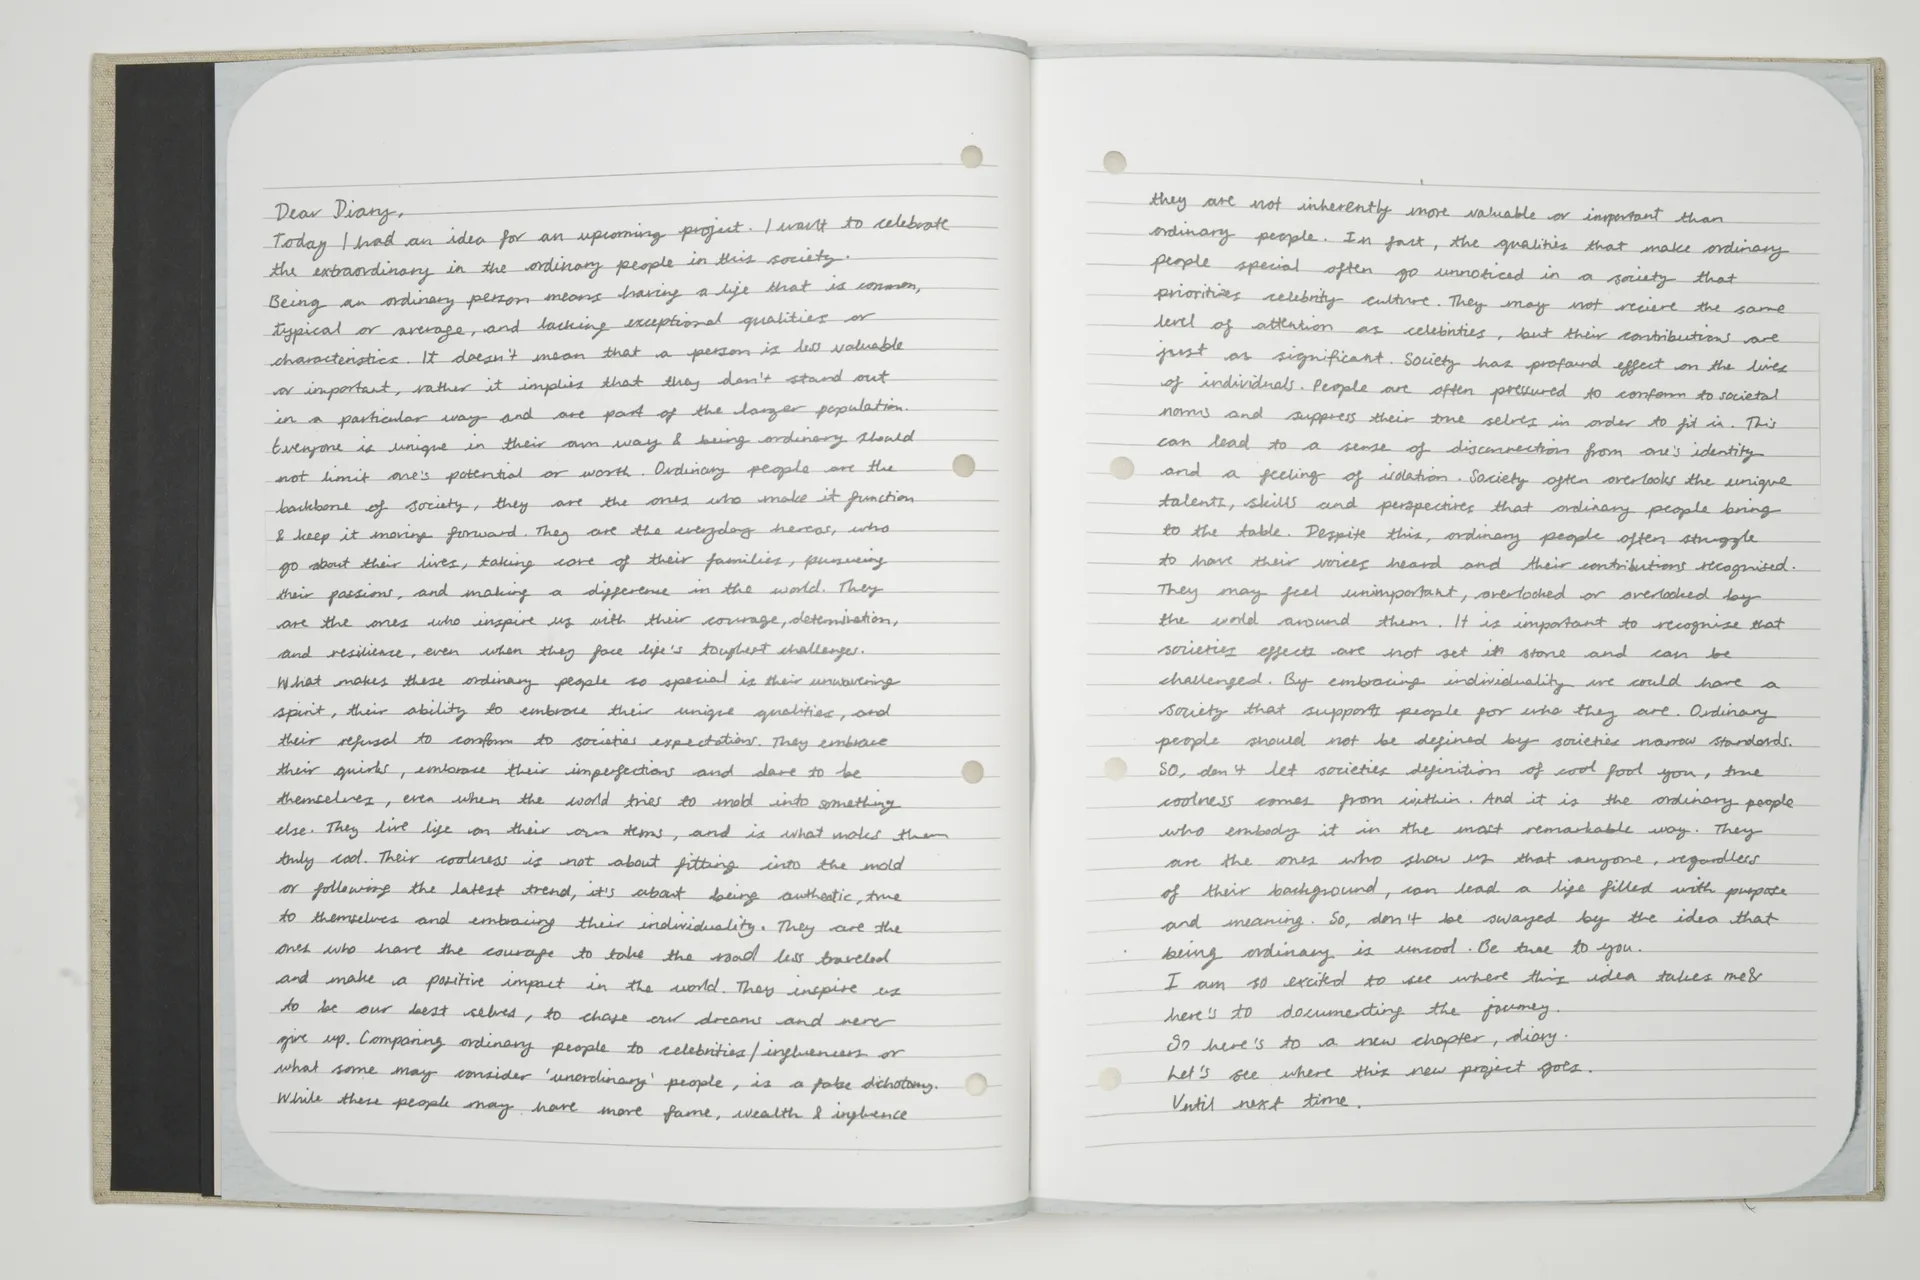 Dear Diary,
Today I had an idea for an upcoming project. I want to celebrate
the extraordinary in the ordinary people in this society.
Being an ordinary person means having a life that is common,
typical or average, and lacking exceptional qualities or
characteristics. It doesn't mean that a person is less valuable
or important, rather it implies that they don't stand out
in a particular way and are part of the larger population.
Everyone is unique in their own way & being ordinary should
not limit one's potential or worth. Ordinary people are the
backbone of society, they are the ones who make it function
& keep it moving forward. They are the everyday heroes, who
go about their lives, taking care of their families, pursueing
their passions, and making a difference in the world. They
are the ones who inspire us with their courage, determination,
and resilience, even when they face life's toughest challenges.
What makes these ordinary people so special is their unwavering
spirit, their ability to embrace their unique qualities, and
their refusal to conform to societies expectations. They embrace
their quirks, embrace their imperfections and dare to be
themselves, even when the world tries to mold into something
else. They live life on their own terms, and is what makes them
truly cool. Their coolness is not about fitting into the mold
or following the latest trend, it's about being authentic, true
to themselves and embracing their individuality. They are the
ones who have the courage to take the road less traveled
and make a positive impact in the world. They inspire us
to be our best selves, to chase our dreams and never
give up. Comparing ordinary people to celebrities/influencers or
what some may consider 'unordinary' people, is a false dichotomy.
While these people may have more fame, wealth & influence
they are not inherently more valuable or important than
ordinary people. In fact, the qualities that make ordinary
people special often go unnoticed in a society that
prioritizes celebrity culture. They may not recieve the same
level of attention as celebrities, but their contributions are
just as significant. Society has profound effect on the lives
of individuals. People are often pressured to conform to societal
norms and suppress their true selves in order to fit in. This
can lead to a sense of disconnection from one's identity
and a feeling of isolation. Society often overlooks the unique
talents, skills and perspectives that ordinary people bring
to the table. Despite this, ordinary people often struggle
to have their voices heard and their contributions recognised.
They may feel unimportant, overlooked or overlooked by
the world around them. It is important to recognise that
societies effects are not set in stone and can be
challenged. By embracing individuality we could have a
society that supports people for who they are. Ordinary
people should not be defined by societies narrow standards.
So, don't let societies definition of cool fool you, true
coolness comes from within. And it is the ordinary people
who embody it in the most remarkable way. They
are the ones who show us that anyone, regardless
of their background, can lead a life filled with purpose
and meaning. So, don't be swayed by the idea that
being ordinary is uncool. Be true to you.
I am so excited to see where this idea takes me &
here's to documenting the journey.
So here's to a new chapter, diary.
Let's see where this new project goes.
Until next time.